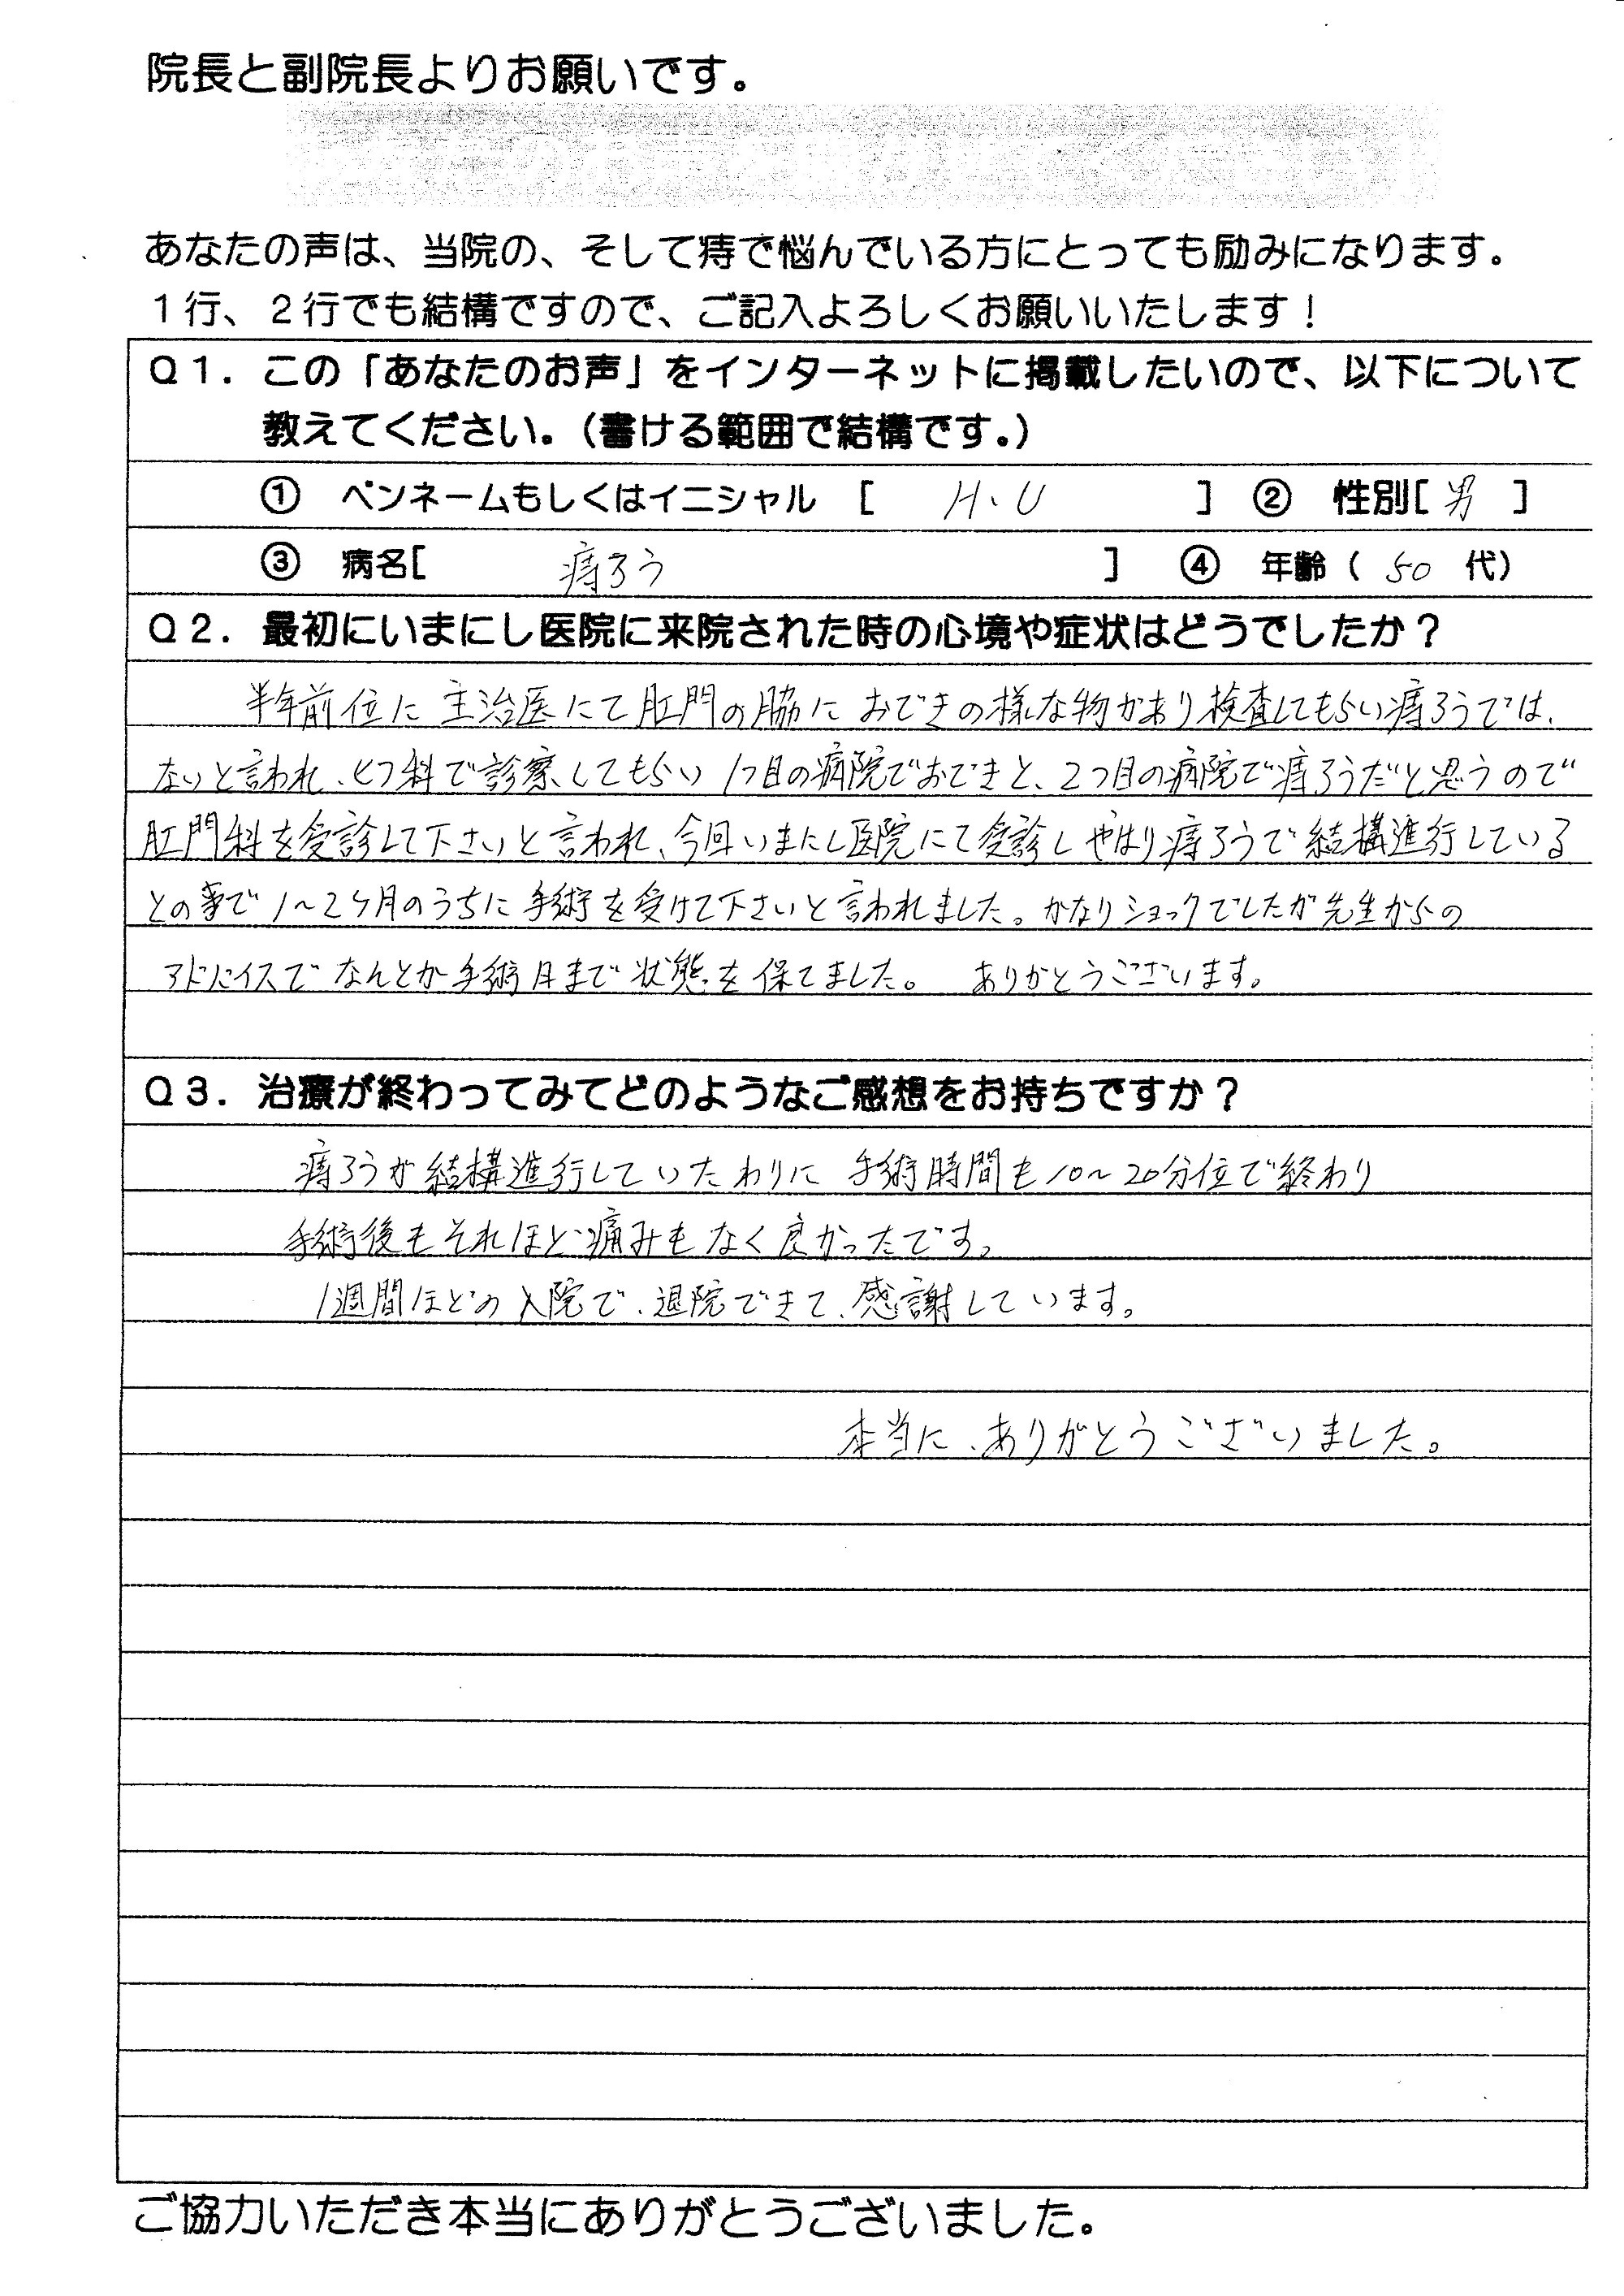 院長と副院長よりお願いです。
あなたの声は、当院の、そして痔で悩んでいる方にとっても励みになります。
1行、2行でも結構ですので、ご記入よろしくお願いいたします！
Q1．この「あなたのお声」をインターネットに掲載したいので、以下について
教えてください。（書ける範囲で結構です。）
① ペンネームもしくはイニシャル [ H.U ] ② 性別[ 男 ]
③ 病名[ 痔ろう ] ④ 年齢（ 50 代）
Q2．最初にいまにし医院に来院された時の心境や症状はどうでしたか？
半年前位に主治医にて肛門の脇におできの様な物があり検査してもらい痔ろうでは、
ないと言われ、ヒフ科で診察してもらい1つ目の病院でおできと、2つ目の病院で痔ろうだと思うので
肛門科を受診して下さいと言われ、今回いまにし医院にて受診しやはり痔ろうで結構進行している
との事で1～2ケ月のうちに手術を受けて下さいと言われました。かなりショックでしたが先生からの
アドバイスでなんとか手術日まで状態を保てました。 ありがとうございます。
Q3．治療が終わってみてどのようなご感想をお持ちですか？
痔ろうが結構進行していたわりに手術時間も10～20分位で終わり
手術後もそれほど痛みもなく良かったです。
1週間ほどの入院で、退院できて、感謝しています。
本当に、ありがとうございました。
ご協力いただき本当にありがとうございました。